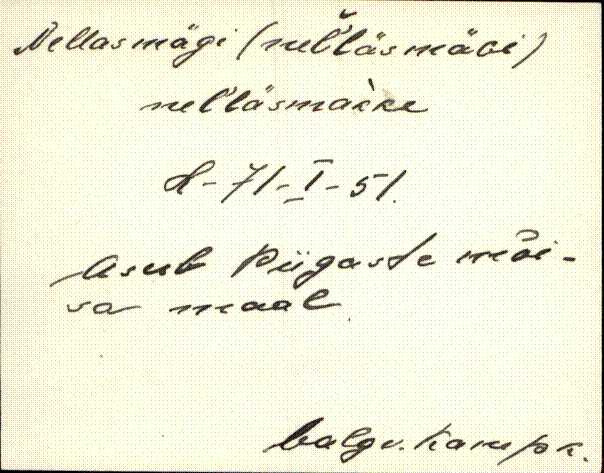 Nellasmägi (nel̆'läsmäGi)
nel'läsmäkke
K-71-I-51.
Asub Piigaste mõi-
sa maal
Valgv. Kamp k.